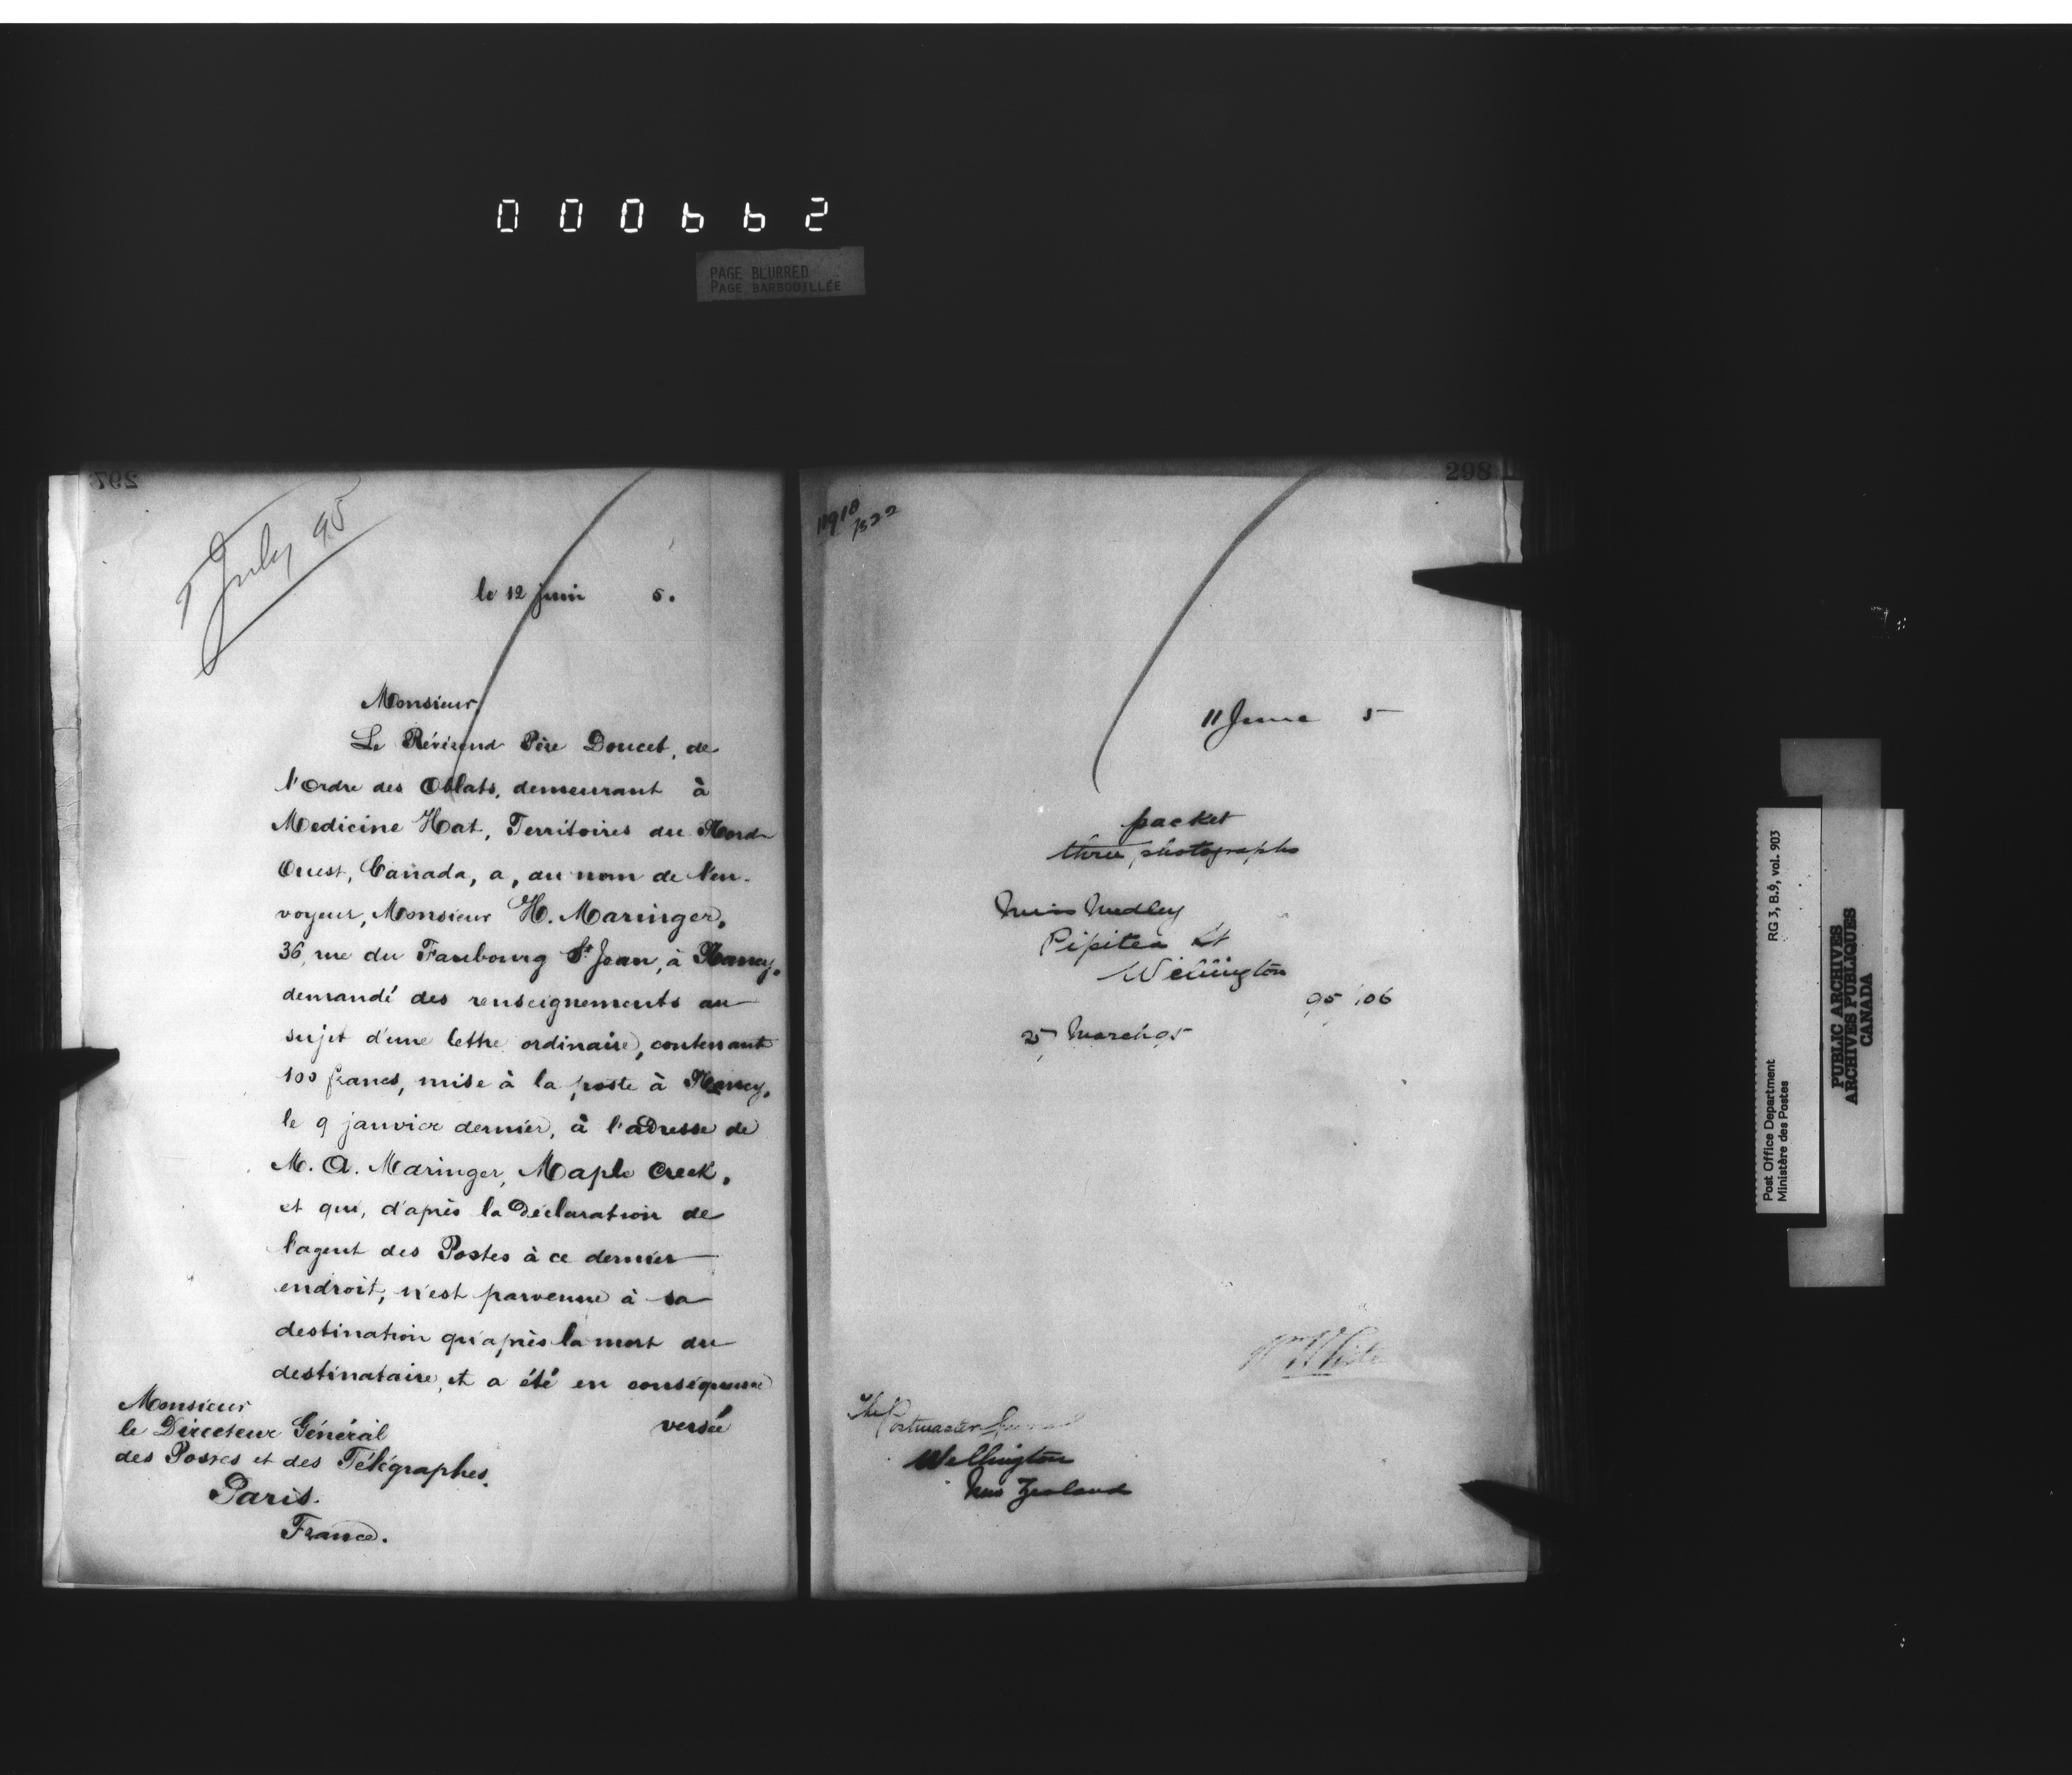 000662
PAGE BLURRED
PAGE BARBOUILLÉE
297
July 95
le 12 juin 5.
Monsieur,
Le Révérend Père Doucet, de
l'Ordre des Oblats, demeurant à
Medicine Hat, Territoires du Nord-
Ouest, Canada, a, au nom de l'en-
voyeur, Monsieur H. Maringer,
36, rue du Faubourg St Jean, à Nancy,
demandé des renseignements au
sujet d'une lettre ordinaire, contenant
100 francs, mise à la poste à Nancy,
le 9 janvier dernier, à l'adresse de
M. A. Maringer, Maple Creek,
et qui, d'après la déclaration de
l'agent des Postes à ce dernier
endroit, n'est parvenue à sa
destination qu'après la mort du
destinataire, et a été en conséquence
versée
Monsieur
le Directeur Général
des Postes et des Télégraphes,
Paris.
France.
298
11910
/522
11 June 5
packet
three photographs
Miss Medley
Pipitea St
Wellington
95 106
25 March 95
Wm White
The Postmaster General
Wellington
New Zealand
Post Office Department
Ministère des Postes
RG 3, B.9, vol. 903
PUBLIC ARCHIVES
ARCHIVES PUBLIQUES
CANADA